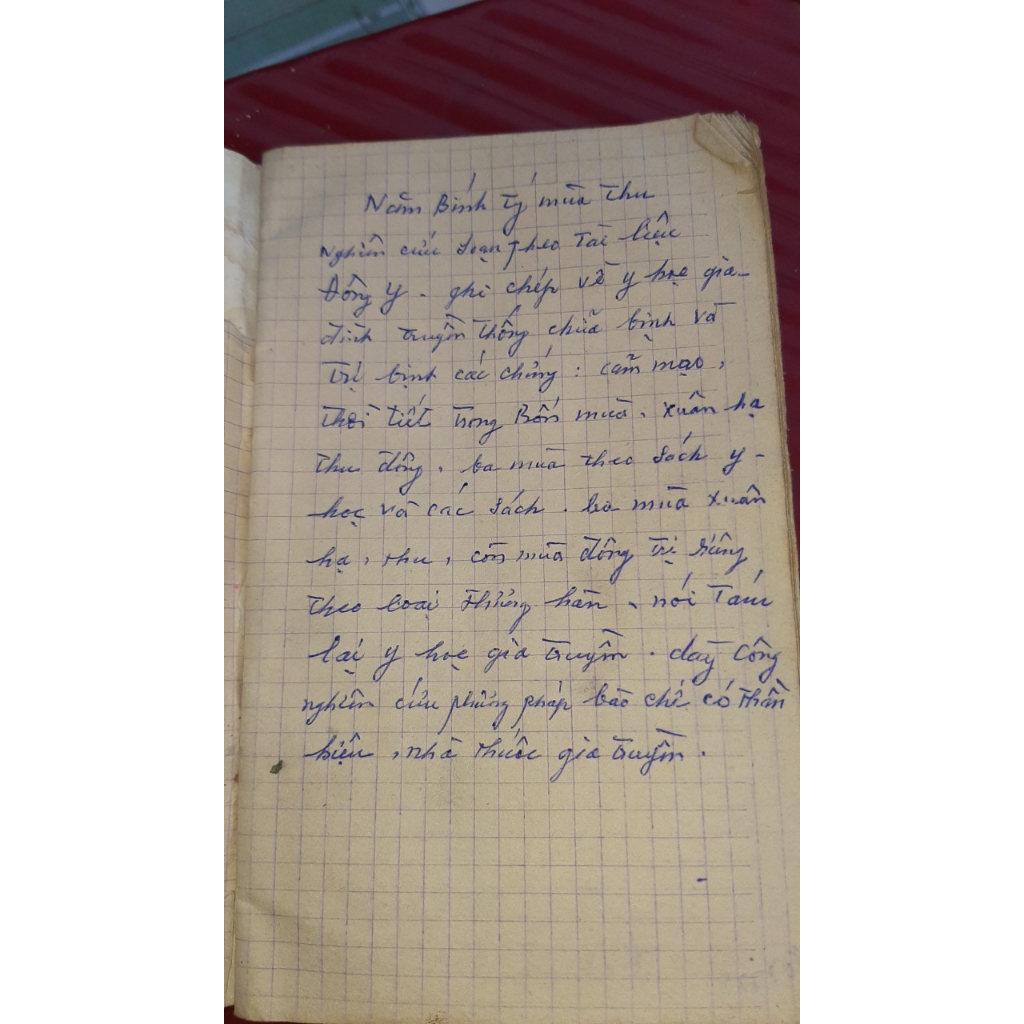 Năm Bính Tý mùa thu
Nghiên cứu soạn theo Tài liệu
Đông y - ghi chép về y học gia-
đình truyền thống chữa bịnh và
Trị bịnh các chứng : cảm mạo,
thời tiết trong Bốn mùa, xuân hạ
thu đông, ba mùa theo sách y-
học và các sách. ba mùa xuân
hạ, thu, còn mùa đông trị
theo loại thương hàn, nói Tóm
lại y học gia truyền. dày công
nghiên cứu phương pháp bào chế có thần
hiệu, nhà thuốc gia truyền.